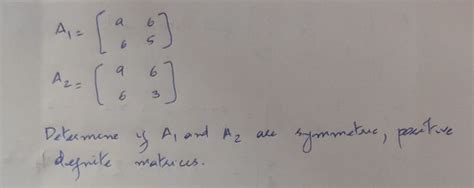 A₁ = [ 9 6
6 5 ]
A₂ = [ 9 6
6 3 ]
Determine if A₁ and A₂ are symmetric, positive
definite matrices.